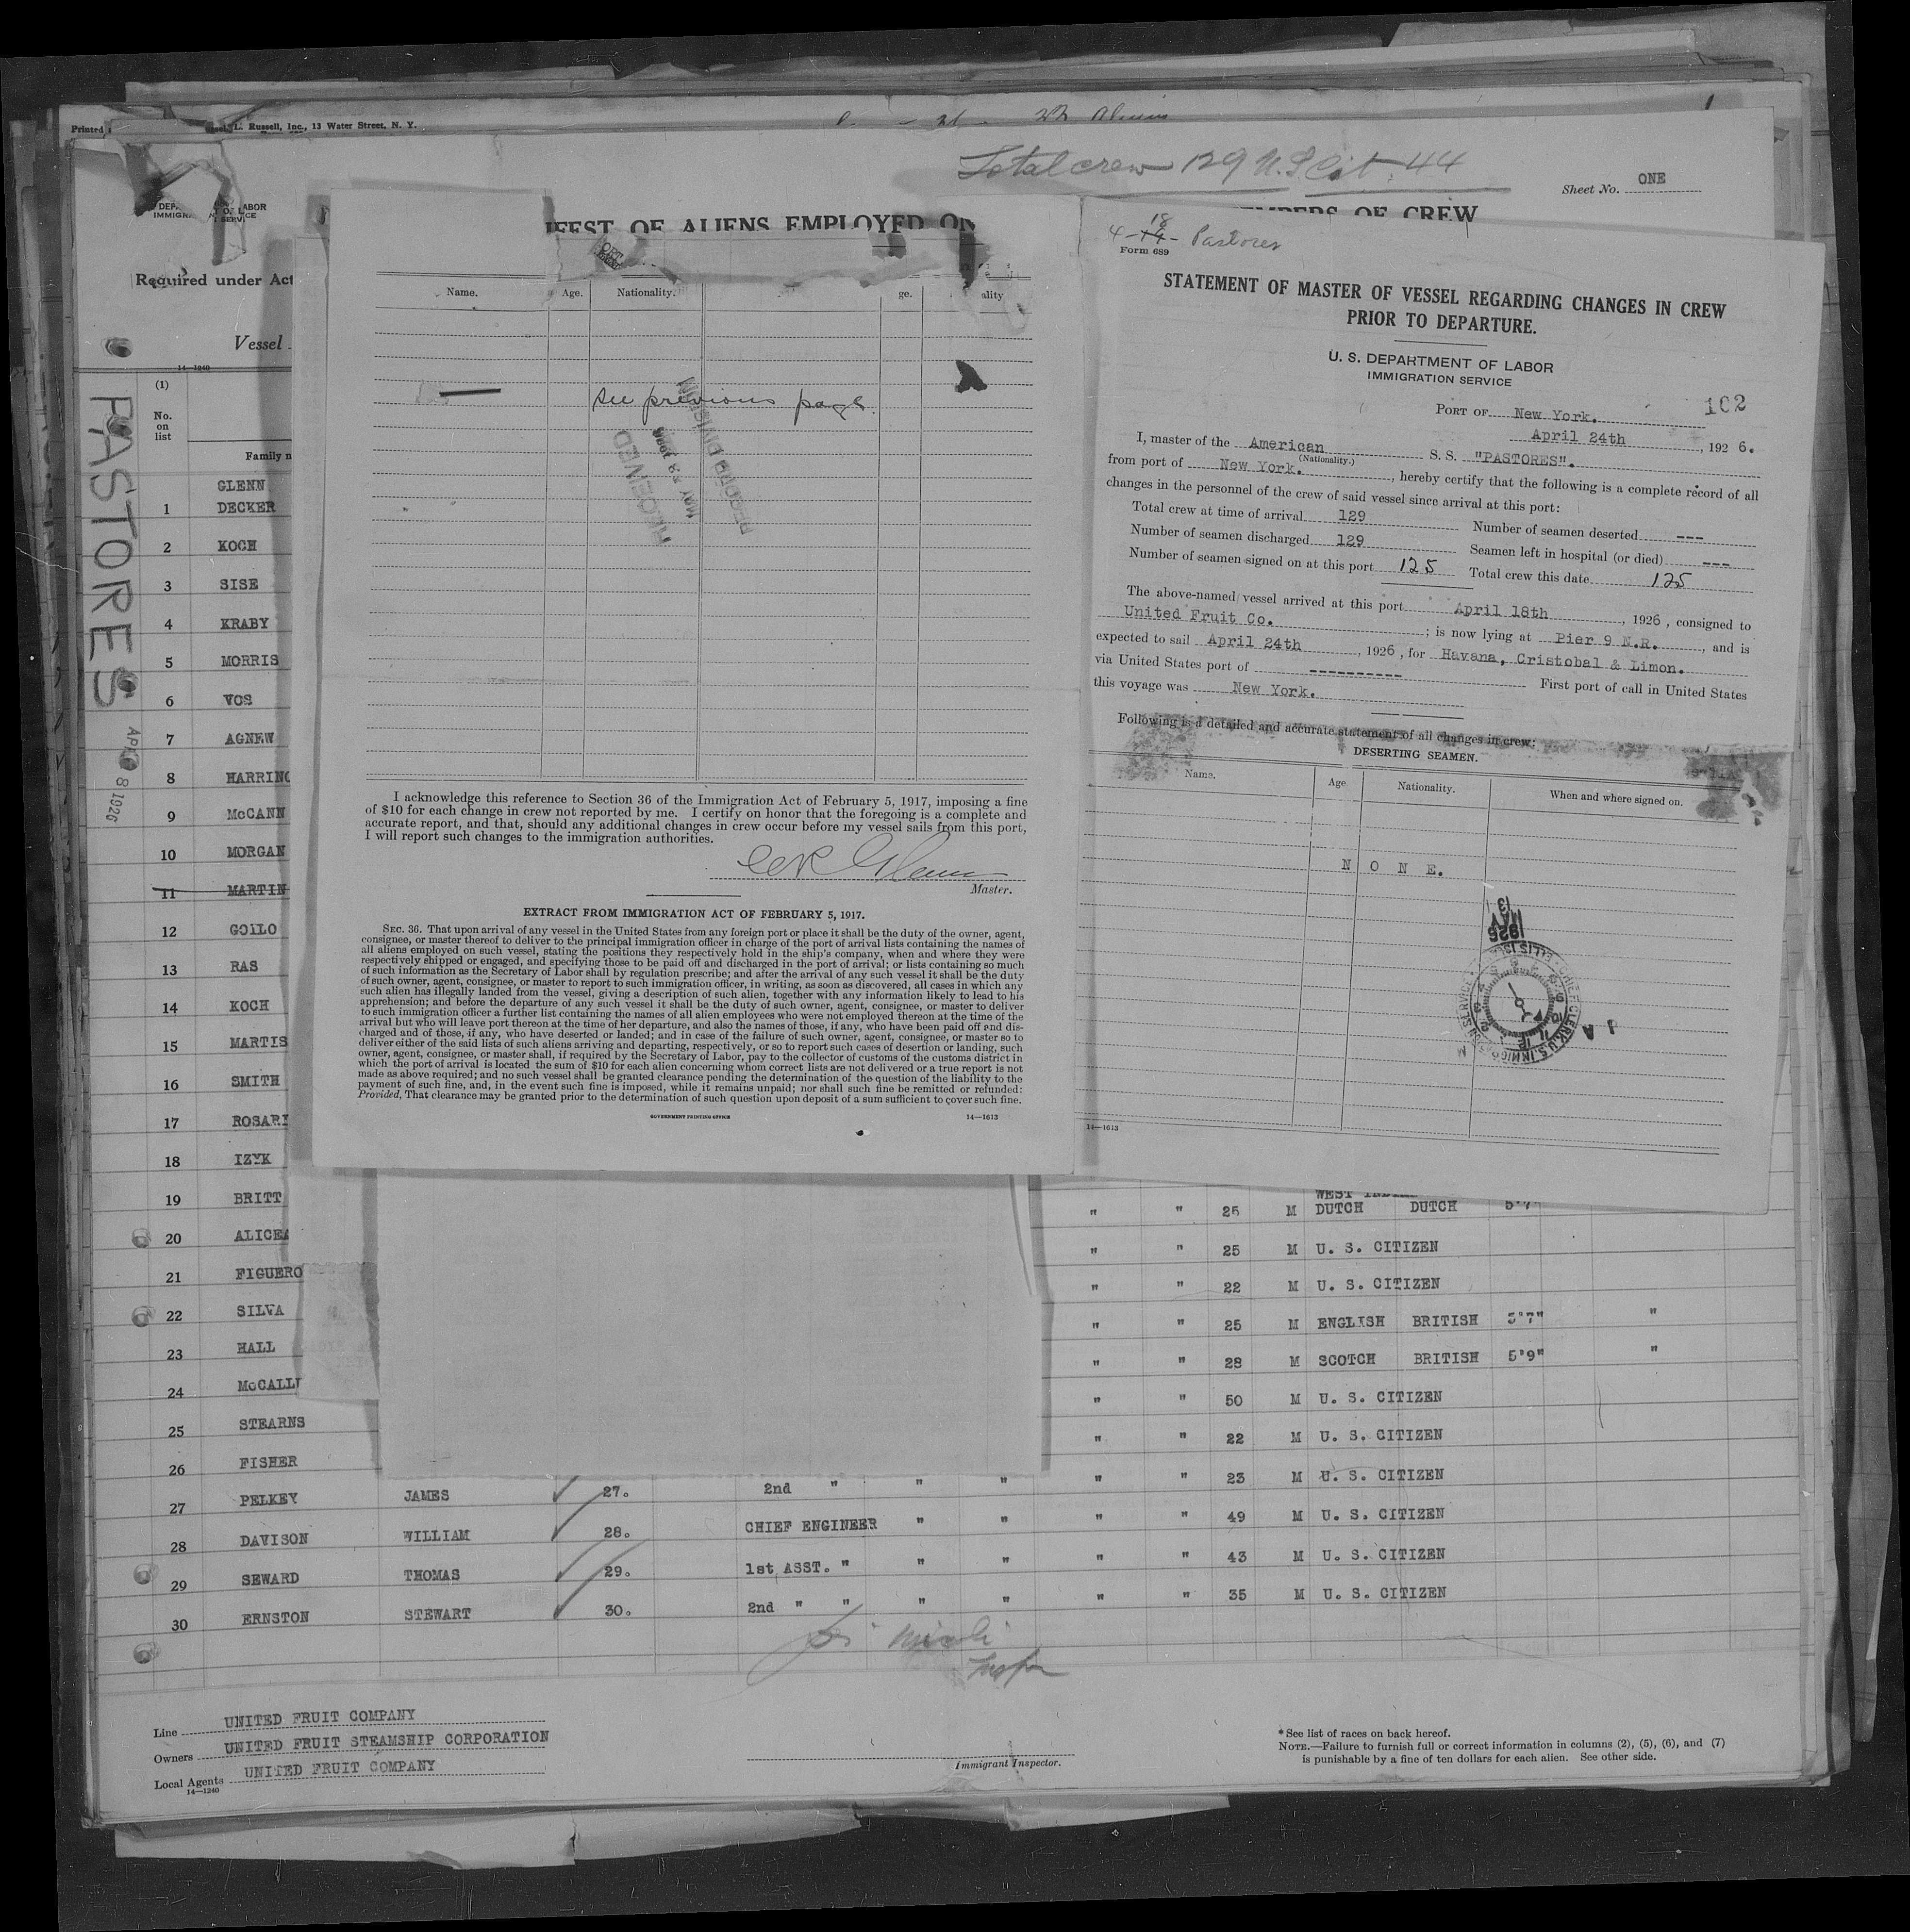 Printed
L. Russell, Inc., 13 Water Street, N. Y.
Total crew 129 U.S Cit. 44
Sheet No. ONE
LABOR
IMMIGR
Required under Act
Vessel
14—1240
(1)
No.
on
list
Family n
PASTORES
8 1926
GLENN
1 DECKER
2 KOCH
3 SISE
4 KRABY
5 MORRIS
6 VOS
7 AGNEW
8 HARRING
9 McCANN
10 MORGAN
11 MARTIN
12 GOILO
13 RAS
14 KOCH
15 MARTIS
16 SMITH
17 ROSARI
18 IZYK
19 BRITT
20 ALICEA
21 FIGUERO
22 SILVA
23 HALL
24 McCALL
25 STEARNS
26 FISHER
27 PELKEY JAMES 27. 2nd " " "
28 DAVISON WILLIAM 28. CHIEF ENGINEER " "
29 SEWARD THOMAS 29. 1st ASST. " " "
30 ERNSTON STEWART 30. 2nd " " " "
IFEST OF ALIENS EMPLOYED ON
MBERS OF CREW
Name. Age. Nationality. ge. ality
See previous page.
RECEIVED
RECORD DIVISION
I acknowledge this reference to Section 36 of the Immigration Act of February 5, 1917, imposing a fine
of $10 for each change in crew not reported by me. I certify on honor that the foregoing is a complete and
accurate report, and that, should any additional changes in crew occur before my vessel sails from this port,
I will report such changes to the immigration authorities.
Glenn
Master.
EXTRACT FROM IMMIGRATION ACT OF FEBRUARY 5, 1917.
SEC. 36. That upon arrival of any vessel in the United States from any foreign port or place it shall be the duty of the owner, agent,
consignee, or master thereof to deliver to the principal immigration officer in charge of the port of arrival lists containing the names of
all aliens employed on such vessel, stating the positions they respectively hold in the ship's company, when and where they were
respectively shipped or engaged, and specifying those to be paid off and discharged in the port of arrival; or lists containing so much
of such information as the Secretary of Labor shall by regulation prescribe; and after the arrival of any such vessel it shall be the duty
of such owner, agent, consignee, or master to report to such immigration officer, in writing, as soon as discovered, all cases in which any
such alien has illegally landed from the vessel, giving a description of such alien, together with any information likely to lead to his
apprehension; and before the departure of any such vessel it shall be the duty of such owner, agent, consignee, or master to deliver
to such immigration officer a further list containing the names of all alien employees who were not employed thereon at the time of the
arrival but who will leave port thereon at the time of her departure, and also the names of those, if any, who have been paid off and dis-
charged and of those, if any, who have deserted or landed; and in case of the failure of such owner, agent, consignee, or master so to
deliver either of the said lists of such aliens arriving and departing, respectively, or so to report such cases of desertion or landing, such
owner, agent, consignee, or master shall, if required by the Secretary of Labor, pay to the collector of customs of the customs district in
which the port of arrival is located the sum of $10 for each alien concerning whom correct lists are not delivered or a true report is not
made as above required; and no such vessel shall be granted clearance pending the determination of the question of the liability to the
payment of such fine, and, in the event such fine is imposed, while it remains unpaid; nor shall such fine be remitted or refunded:
Provided, That clearance may be granted prior to the determination of such question upon deposit of a sum sufficient to cover such fine.
GOVERNMENT PRINTING OFFICE 14—1613
18
4-14- Pastores
Form 689
STATEMENT OF MASTER OF VESSEL REGARDING CHANGES IN CREW
PRIOR TO DEPARTURE.
U. S. DEPARTMENT OF LABOR
IMMIGRATION SERVICE
102
PORT OF New York.
April 24th, 1926.
I, master of the American S. S. "PASTORES".
(Nationality.)
from port of New York., hereby certify that the following is a complete record of all
changes in the personnel of the crew of said vessel since arrival at this port:
Total crew at time of arrival 129 Number of seamen deserted ---
Number of seamen discharged 129 Seamen left in hospital (or died) ---
Number of seamen signed on at this port 125 Total crew this date 125
The above-named vessel arrived at this port April 18th, 1926, consigned to
United Fruit Co.; is now lying at Pier 9 N.R., and is
expected to sail April 24th, 1926, for Havana, Cristobal & Limon.
via United States port of ---------- First port of call in United States
this voyage was New York.
Following is a detailed and accurate statement of all changes in crew:
DESERTING SEAMEN.
Name. Age Nationality. When and where signed on.
N O N E.
MAY 13
1926
14—1613
" " 25 M DUTCH DUTCH 5'7"
" " 25 M U. S. CITIZEN
" " 22 M U. S. CITIZEN
" " 25 M ENGLISH BRITISH 5'7" "
" " 28 M SCOTCH BRITISH 5'9" "
" " 50 M U. S. CITIZEN
" " 22 M U. S. CITIZEN
" " 23 M U. S. CITIZEN
" " 49 M U. S. CITIZEN
" " 43 M U. S. CITIZEN
" " 35 M U. S. CITIZEN
Line UNITED FRUIT COMPANY
Owners UNITED FRUIT STEAMSHIP CORPORATION
Local Agents UNITED FRUIT COMPANY
14—1240
Immigrant Inspector.
* See list of races on back hereof.
NOTE.—Failure to furnish full or correct information in columns (2), (5), (6), and (7)
is punishable by a fine of ten dollars for each alien. See other side.